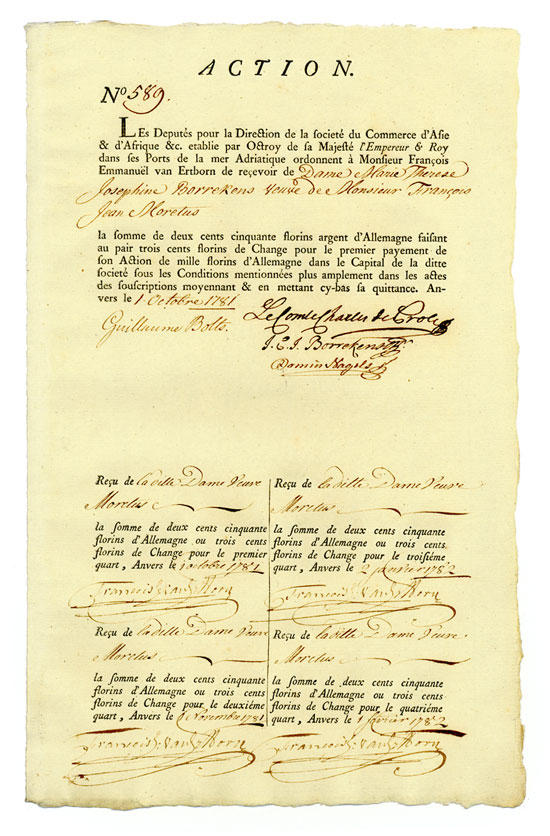 ACTION.
No 589.
LEs Deputés pour la Direction de la societé du Commerce d'Asie
& d'Afrique &c. etablie par Octroy de sa Majesté l'Empereur & Roy
dans ses Ports de la mer Adriatique ordonnent à Monsieur François
Emmanuël van Ertborn de reçevoir de Dame Marie Therese
Josephine Borrekens veuve de Monsieur François
Jean Moretus
la somme de deux cents cinquante florins argent d'Allemagne faisant
au pair trois cents florins de Change pour le premier payement de
son Action de mille florins d'Allemagne dans le Capital de la ditte
societé sous les Conditions mentionnées plus amplement dans les actes
des souscriptions moyennant & en mettant cy-bas sa quittance. An-
vers le 1 Octobre 1781
Guillaume Bolts.
Le Comte Charles de Proli
J. E. J. Borrekens
Reçu de la ditte Dame Veuve
Moretus
la somme de deux cents cinquante
florins d'Allemagne ou trois cents
florins de Change pour le premier
quart, Anvers le 1 octobre 1781
François E. van Ertborn
Reçu de la ditte Dame Veuve
Moretus
la somme de deux cents cinquante
florins d'Allemagne ou trois cents
florins de Change pour le troisiéme
quart, Anvers le 2 janvier 1782
François E. van Ertborn
Reçu de la ditte Dame Veuve
Moretus
la somme de deux cents cinquante
florins d'Allemagne ou trois cents
florins de Change pour le deuxiéme
quart, Anvers le Novembre 1781
François E. van Ertborn
Reçu de la ditte Dame Veuve
Moretus
la somme de deux cents cinquante
florins d'Allemagne ou trois cents
florins de Change pour le quatriéme
quart, Anvers le 1 février 1782
François E. van Ertborn